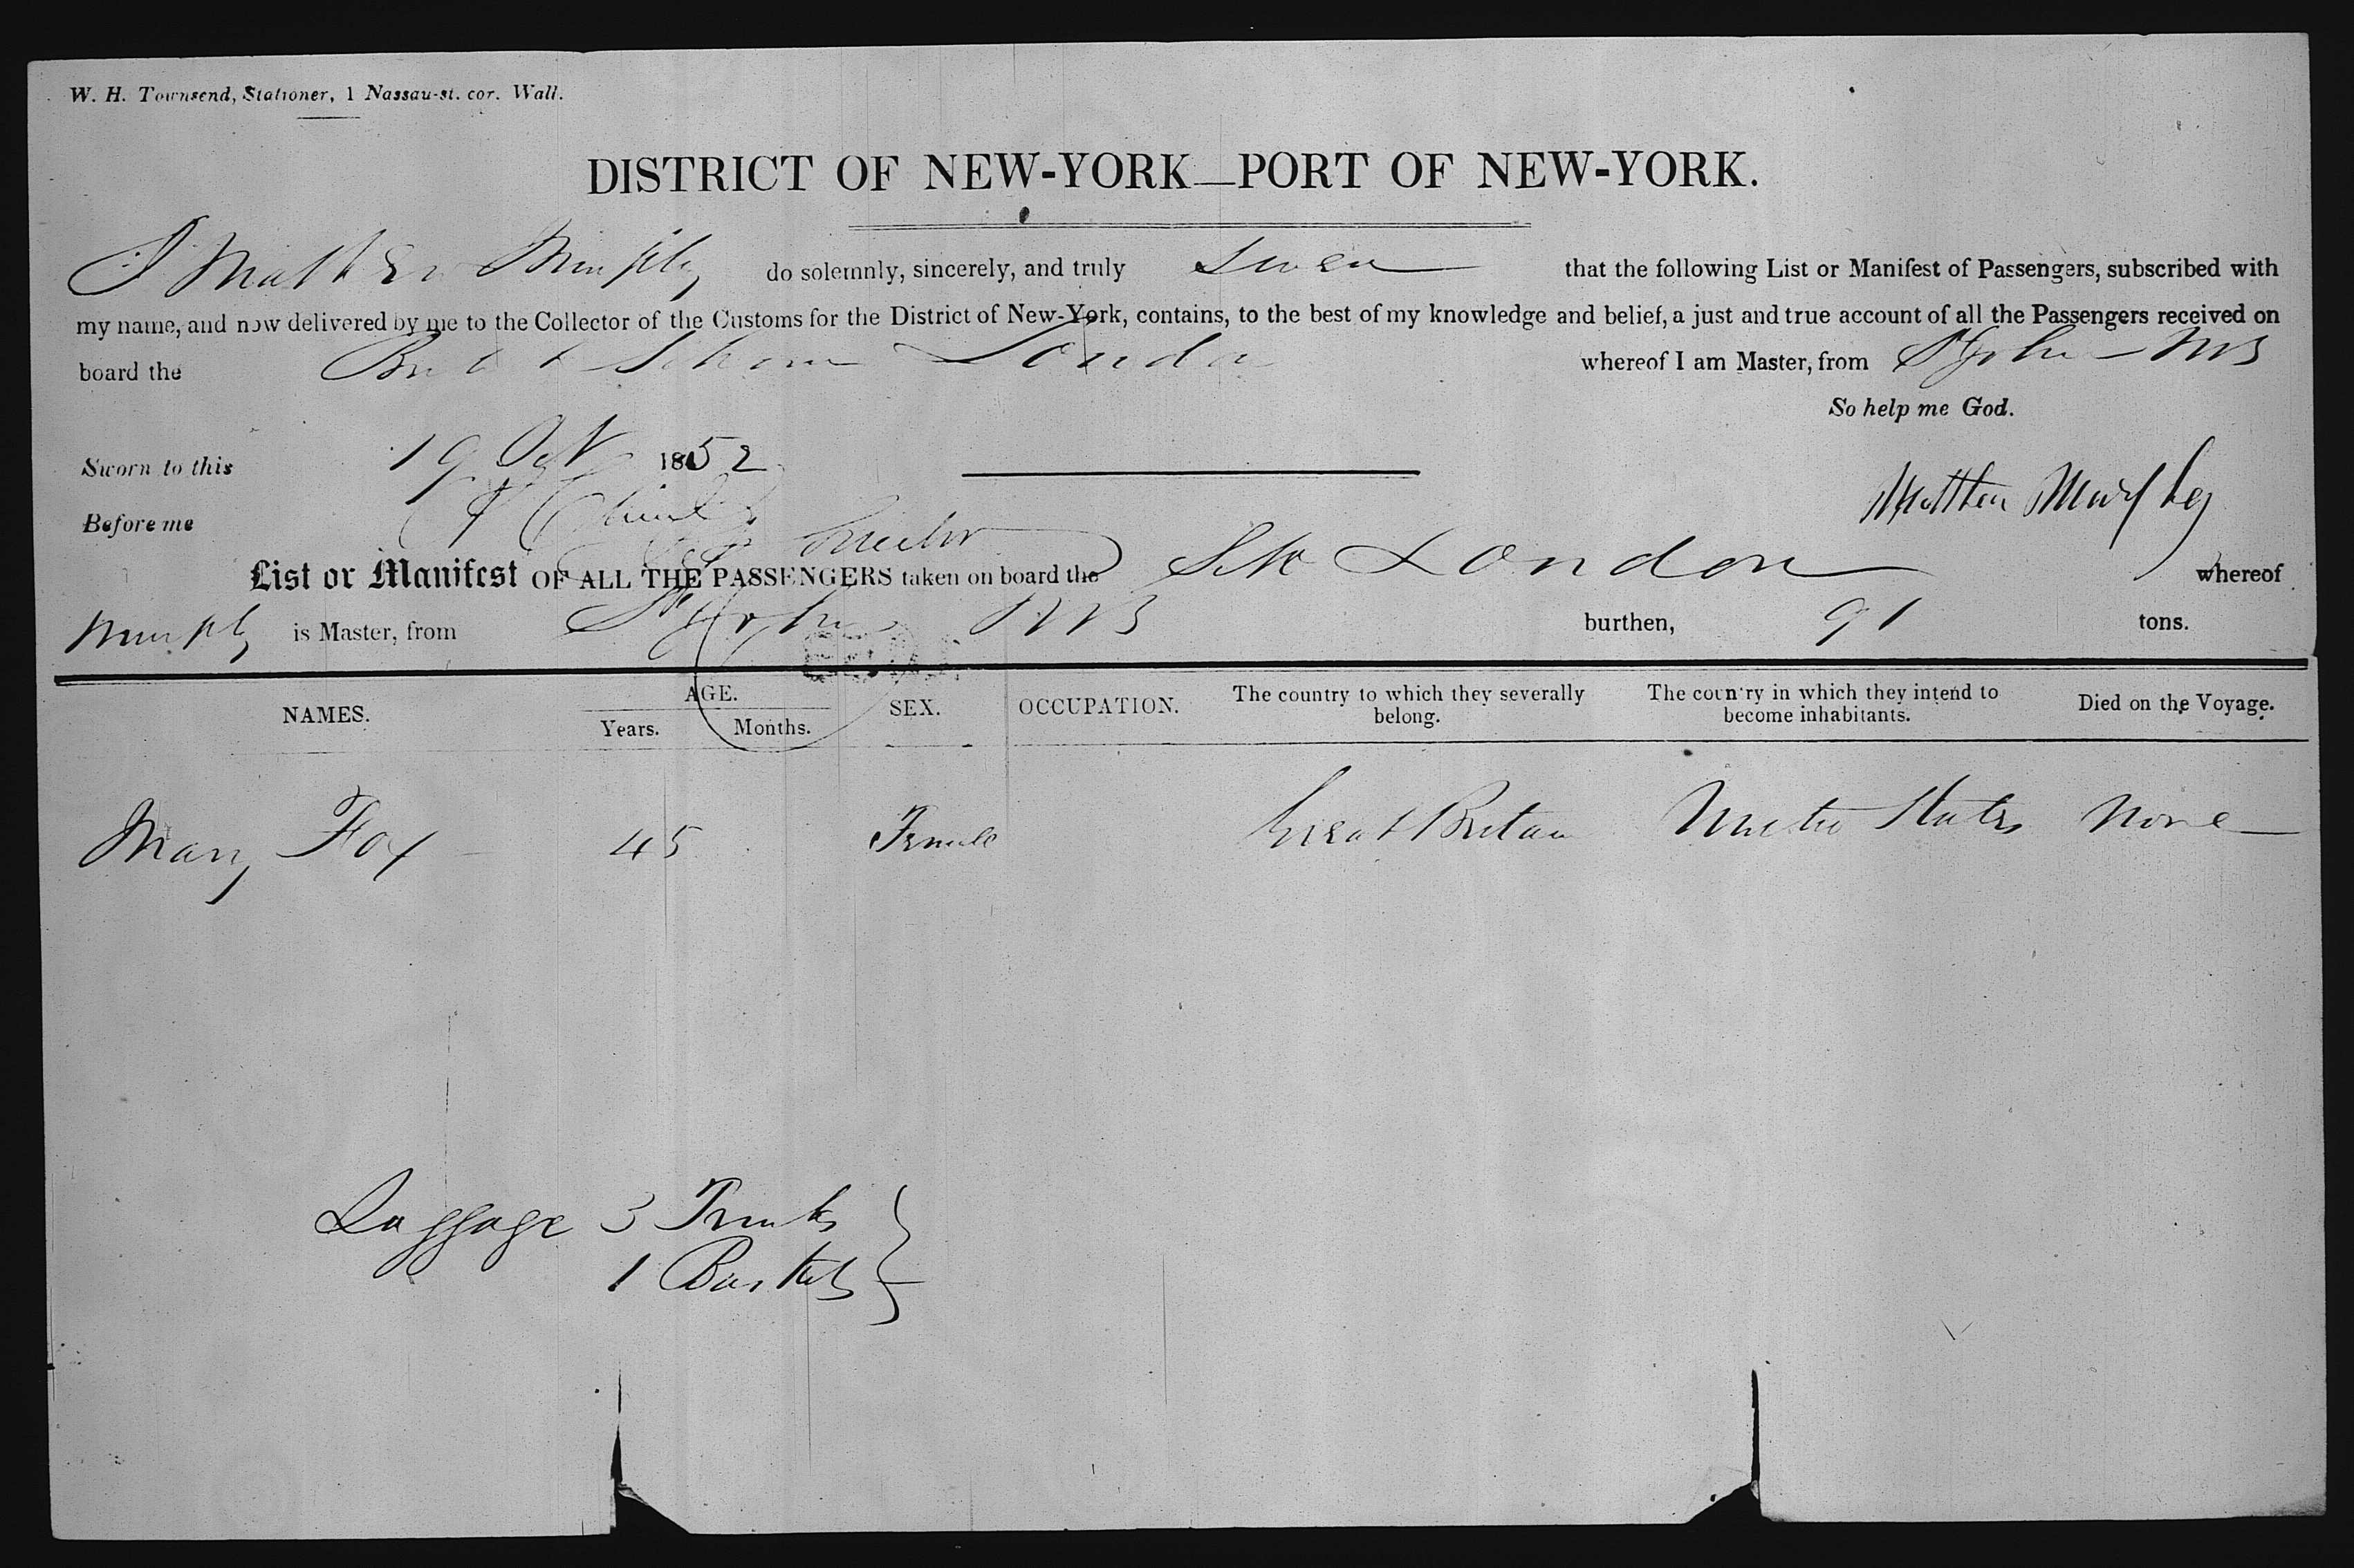 W. H. Townsend, Stationer, 1 Nassau-st. cor. Wall.
DISTRICT OF NEW-YORK—PORT OF NEW-YORK.
I Mathew Murphy do solemnly, sincerely, and truly Swear that the following List or Manifest of Passengers, subscribed with
my name, and now delivered by me to the Collector of the Customs for the District of New-York, contains, to the best of my knowledge and belief, a just and true account of all the Passengers received on
board the Brit Schom London whereof I am Master, from St John NB
So help me God.
Sworn to this 19 Oct 1852
Matthew Murphy
Before me
List or Manifest OF ALL THE PASSENGERS taken on board the Sch London whereof
Murphy is Master, from St John NB burthen, 91 tons.
NAMES. AGE. Years. Months. SEX. OCCUPATION. The country to which they severally belong. The country in which they intend to become inhabitants. Died on the Voyage.
Mary Fox 45 Female Great Britain United States None
Luggage 3 Trunks
1 Basket